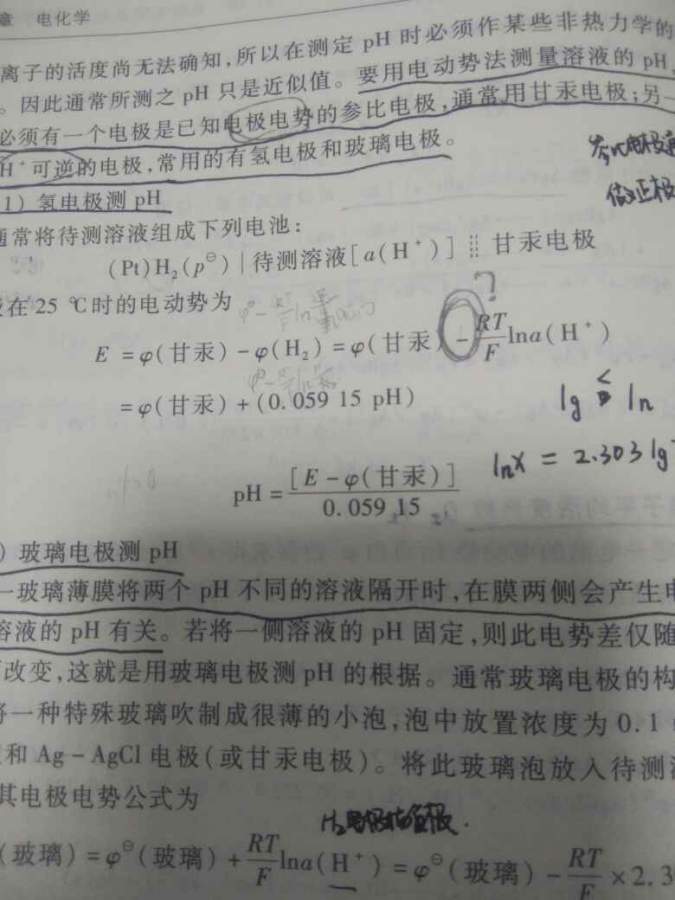 章 电化学
离子的活度尚无法确知,所以在测定 pH 时必须作某些非热力学的
。因此通常所测之 pH 只是近似值。要用电动势法测量溶液的 pH,
必须有一个电极是已知电极电势的参比电极,通常用甘汞电极;另一
H⁺可逆的电极,常用的有氢电极和玻璃电极。
参比电极
做正极
1) 氢电极测 pH
通常将待测溶液组成下列电池:
(Pt)H₂(p^⊖)|待测溶液[a(H⁺)]┆┆甘汞电极
在 25 ℃时的电动势为
?
E = φ(甘汞) - φ(H₂) = φ(甘汞) - RT/F lna(H⁺)
= φ(甘汞) + (0.059 15 pH)
lg < ln
lnx = 2.303 lg
pH = [E - φ(甘汞)] / 0.059 15
) 玻璃电极测 pH
一玻璃薄膜将两个 pH 不同的溶液隔开时,在膜两侧会产生电
溶液的 pH 有关。若将一侧溶液的 pH 固定,则此电势差仅随
改变,这就是用玻璃电极测 pH 的根据。通常玻璃电极的构
将一种特殊玻璃吹制成很薄的小泡,泡中放置浓度为 0.1
和 Ag-AgCl 电极(或甘汞电极)。将此玻璃泡放入待测溶
其电极电势公式为
(玻璃) = φ^⊖(玻璃) + RT/F lna(H⁺) = φ^⊖(玻璃) - RT/F × 2.3